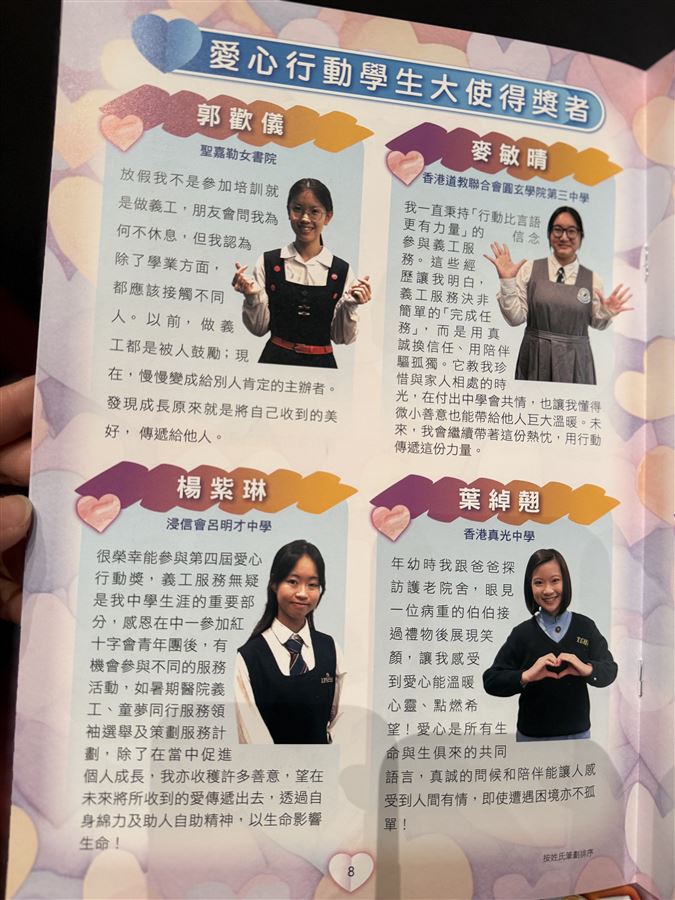 愛心行動學生大使得獎者
郭歡儀
聖嘉勒女書院
放假我不是參加培訓就
是做義工，朋友會問我為
何不休息，但我認為
除了學業方面，
都應該接觸不同
人。以前，做義
工都是被人鼓勵；現
在，慢慢變成給別人肯定的主辦者。
發現成長原來就是將自己收到的美
好，傳遞給他人。
麥敏晴
香港道教聯合會圓玄學院第三中學
我一直秉持「行動比言語
更有力量」的信念
參與義工服
務。這些經
歷讓我明白，
義工服務決非
簡單的「完成任
務」，而是用真
誠換信任、用陪伴
驅孤獨。它教我珍
惜與家人相處的時
光，在付出中學會共情，也讓我懂得
微小善意也能帶給他人巨大溫暖。未
來，我會繼續帶著這份熱忱，用行動
傳遞這份力量。
楊紫琳
浸信會呂明才中學
很榮幸能參與第四屆愛心
行動獎，義工服務無疑
是我中學生涯的重要部
分，感恩在中一參加紅
十字會青年團後，有
機會參與不同的服務
活動，如暑期醫院義
工、童夢同行服務領
袖選舉及策劃服務計
劃，除了在當中促進
個人成長，我亦收穫許多善意，望在
未來將所收到的愛傳遞出去，透過自
身綿力及助人自助精神，以生命影響
生命！
葉綽翹
香港真光中學
年幼時我跟爸爸探
訪護老院舍，眼見
一位病重的伯伯接
過禮物後展現笑
顏，讓我感受
到愛心能溫暖
心靈、點燃希
望！愛心是所有生
命與生俱來的共同
語言，真誠的問候和陪伴能讓人感
受到人間有情，即使遭遇困境亦不孤
單！
按姓氏筆劃排序
8